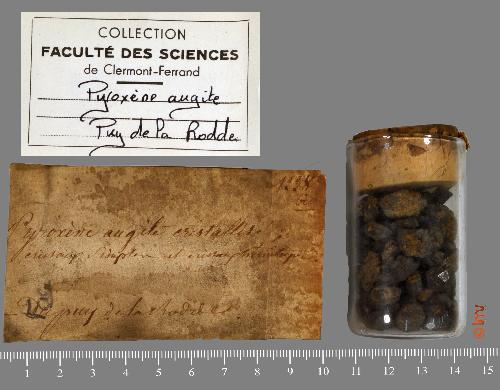 COLLECTION
FACULTÉ DES SCIENCES
de Clermont-Ferrand
Pyroxène augite
Puy de la Rodde
Pyroxène augite cristallisé
et
puy de la rodde
1 2 3 4 5 6 7 8 9 10 11 12 13 14 15